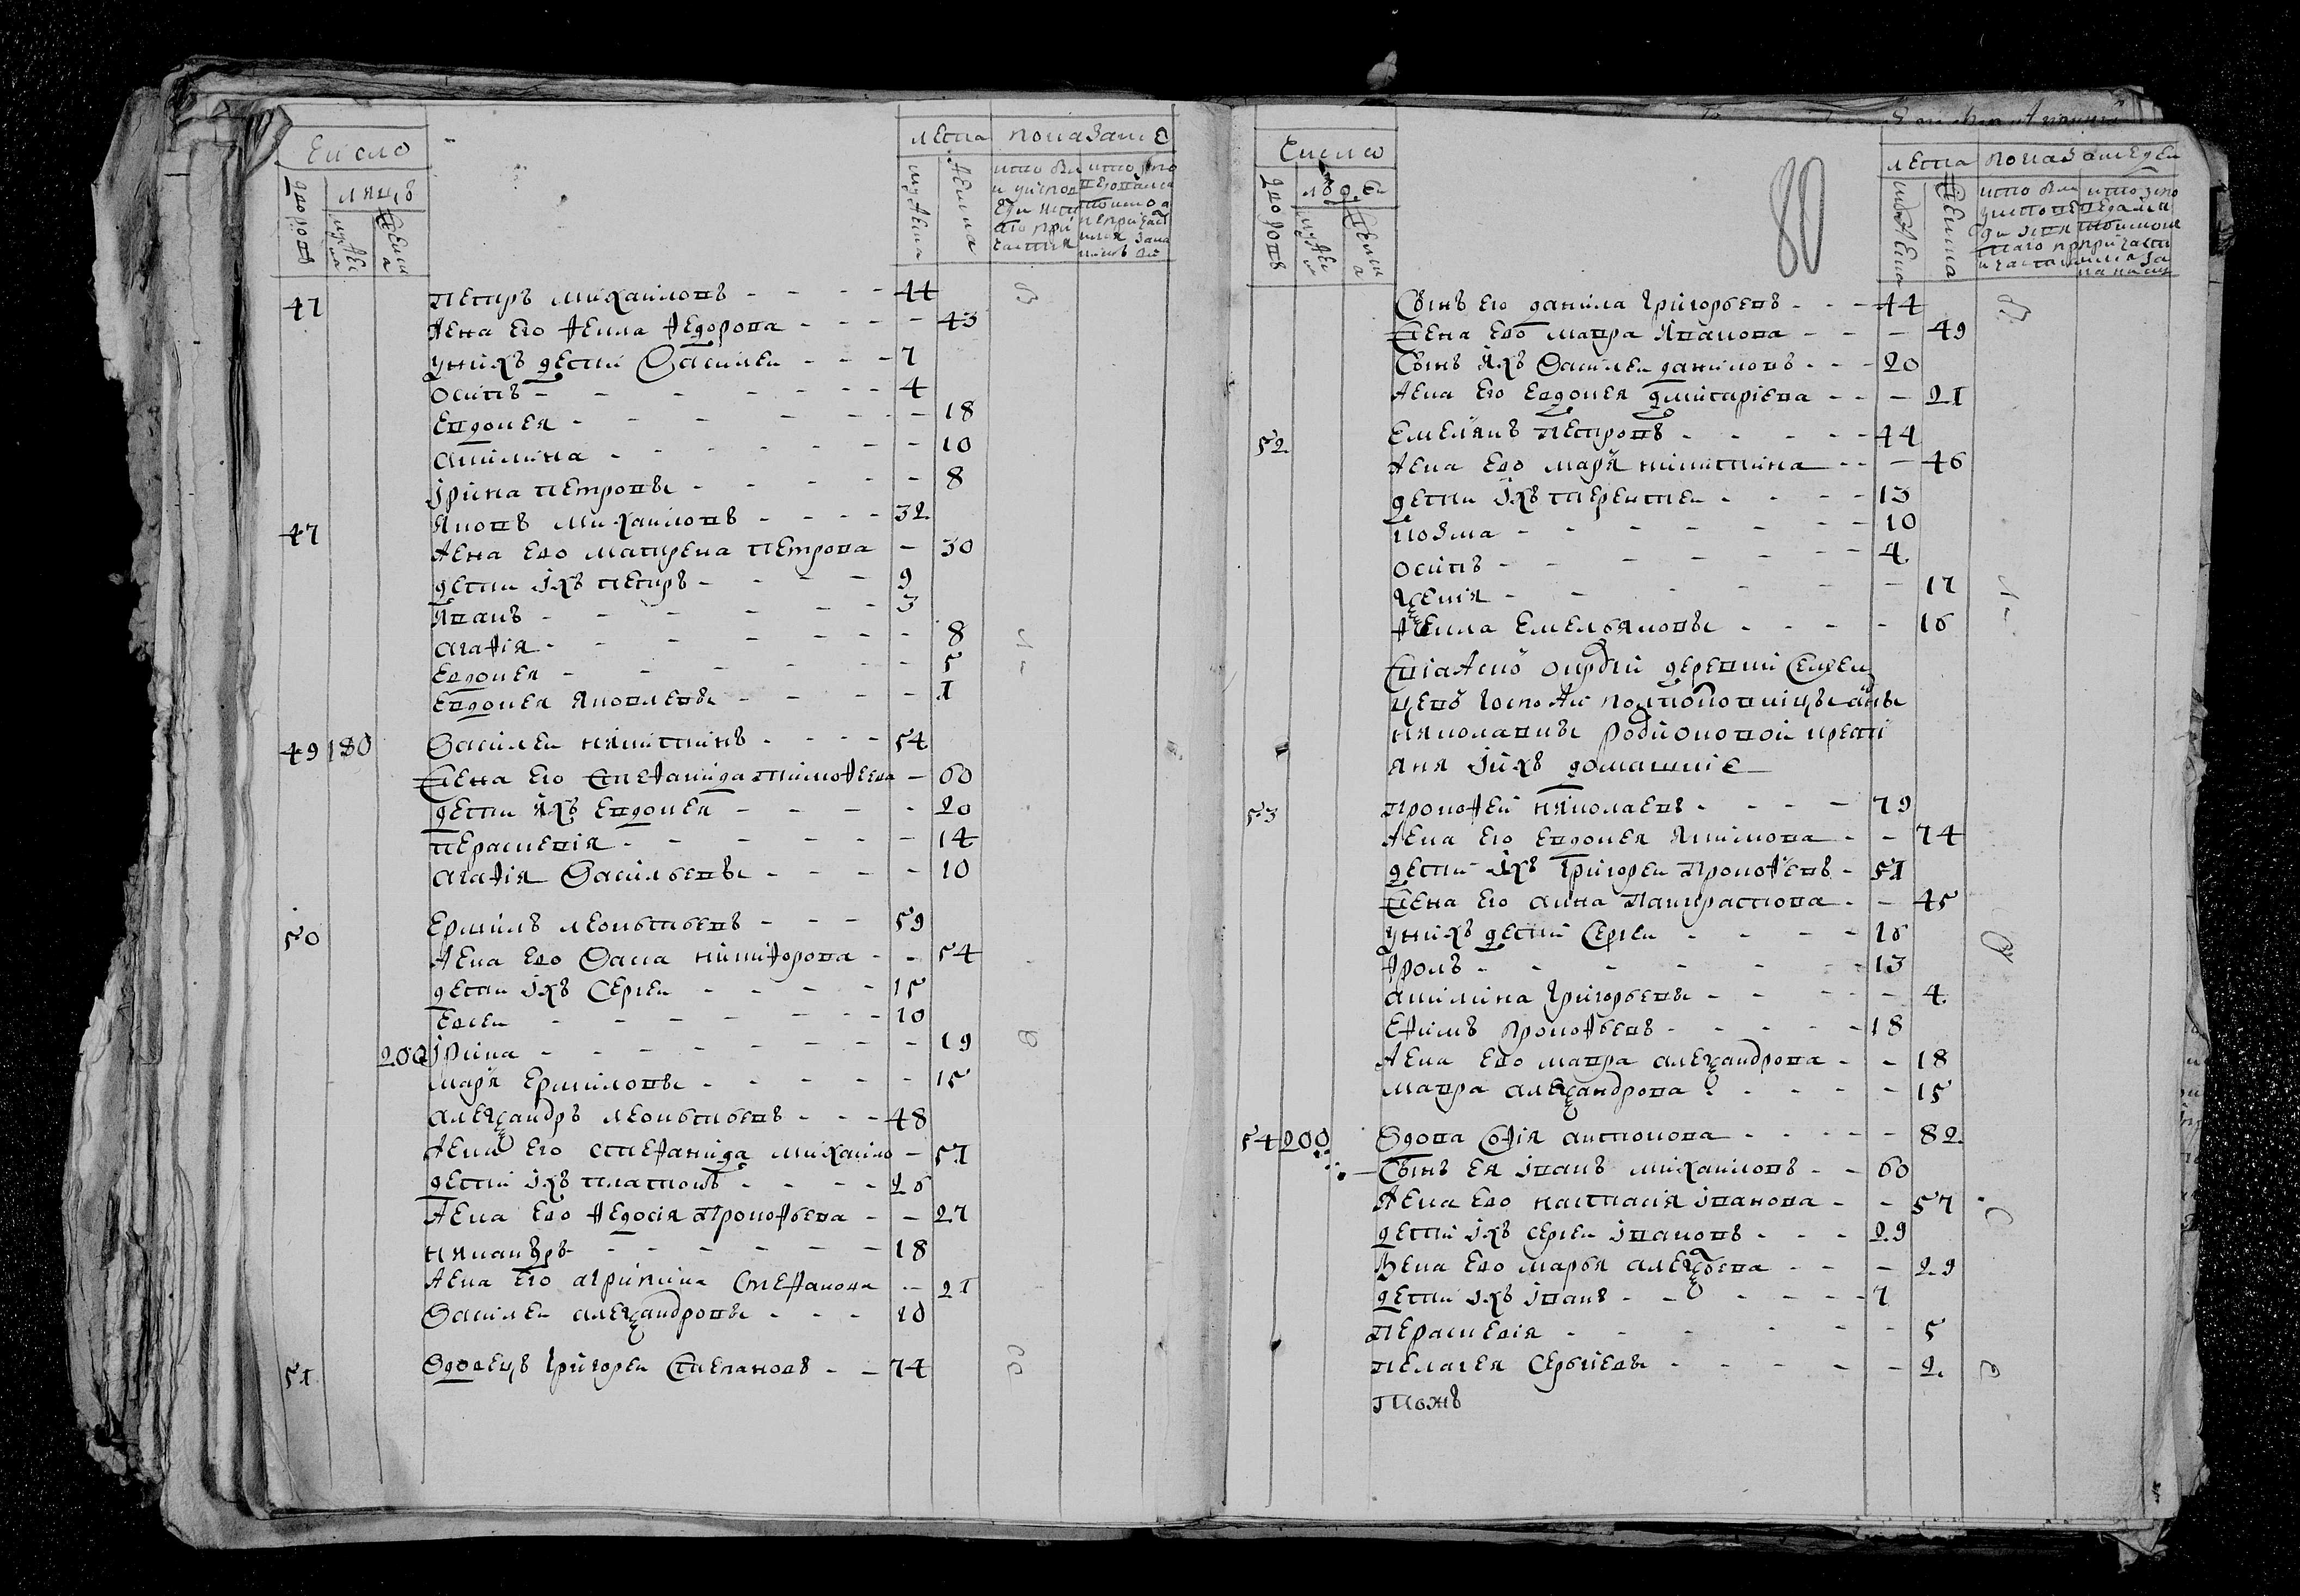 Число
лета показание
дворовъ
людей
мужеска
женска
мужеска
женска
47 Петръ Михаиловъ - - - 44
Жена его Фекла Федорова - - - 43
У них дети Василеи - - - 7
Осипъ - - - 4
Евдокея - - - 18
Акилина - - - 10
Ирина Петровы - - - 8
47 Яковъ Михаиловъ - - - 32
Жена ево Матрена Петрова - 30
Дети ихъ Петръ - - - 9
Иванъ - - - 3
Агафия - - - 8
Евдокея - - - 5
Евдокея Яковлевы - - - 1
49 180 Василеи Никитинъ - - - 54
Жена его Стефанида Тимофеева - 60
Дети ихъ Евдокея - - - 20
Перасковия - - - 14
Агафия Васильевы - - - 10
50 Ермилъ Леонтьевъ - - - 59
Жена ево Васса Никифорова - - 54
Дети ихъ Сергеи - - - 15
Евсеи - - - 10
200 Ирина - - - 19
Маря Ермиловы - - - 15
Александръ Леонтьевъ - - - 48
Жена его Стефанида Михаило - 51
Дети ихъ Платонъ - - - 26
Жена ево Федосия Прокофьева - - 27
Никандръ - - - 18
Жена его Агрипина Стефанова - 21
Василеи Александровы - - - 10
51 Вдовецъ Григореи Степановъ - - 74
80
Число
лета показание
дворовъ
мужеска
женска
Сынъ его Данила Григорьевъ - - - 44
Жена ево Мавра Иванова - - - 49
Сынъ ихъ Василеи Даниловъ - - - 20
Жена его Евдокея Дмитриева - - - 21
52 Емелянъ Петровъ - - - 44
Жена ево Маря Никитина - - - 46
Дети ихъ Терентеи - - - 13
Козма - - - 10
Осипъ - - - 4
Ксения - - - 17
Фекла Емельяновы - - - 16
деревни
госпожи
Николаевны Родионовой кресть
яня и ихъ домашние
53 Прокофеи Николаевъ - - - 79
Жена его Евдокея Якимова - - 74
Дети ихъ Григореи Прокофевъ - 51
Жена его Анна Панкратова - - 45
У нихъ дети Сергеи - - - 16
Фролъ - - - 13
Акилина Григорьевы - - - 4
Ефимъ Прокофьевъ - - - 18
Жена ево Мавра Александрова - - 18
Мавра Александрова - - - 15
54 200 Вдова София Антонова - - - 82
Сынъ ея Иванъ Михаиловъ - - 60
Жена ево Настасия Иванова - - 57
Дети ихъ Сергеи Ивановъ - - - 29
Жена ево Марья Алексеева - - - 29
Дети ихъ Иванъ - - - 7
Перасковия - - - 5
Пелагея Сергиевы - - - 2
Тожъ